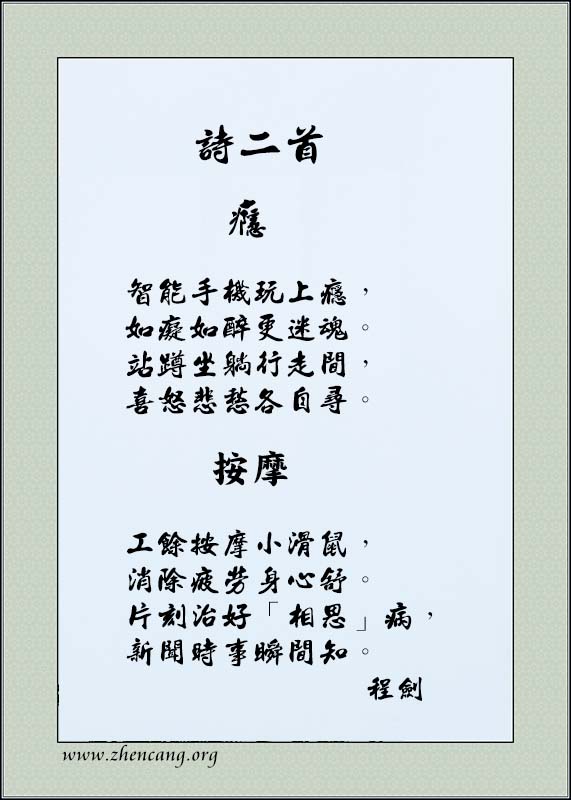 詩二首
癮
智能手機玩上癮，
如癡如醉更迷魂。
站蹲坐躺行走間，
喜怒悲愁各自尋。
按摩
工餘按摩小滑鼠，
消除疲勞身心舒。
片刻治好「相思」病，
新聞時事瞬間知。
程劍
www.zhencang.org